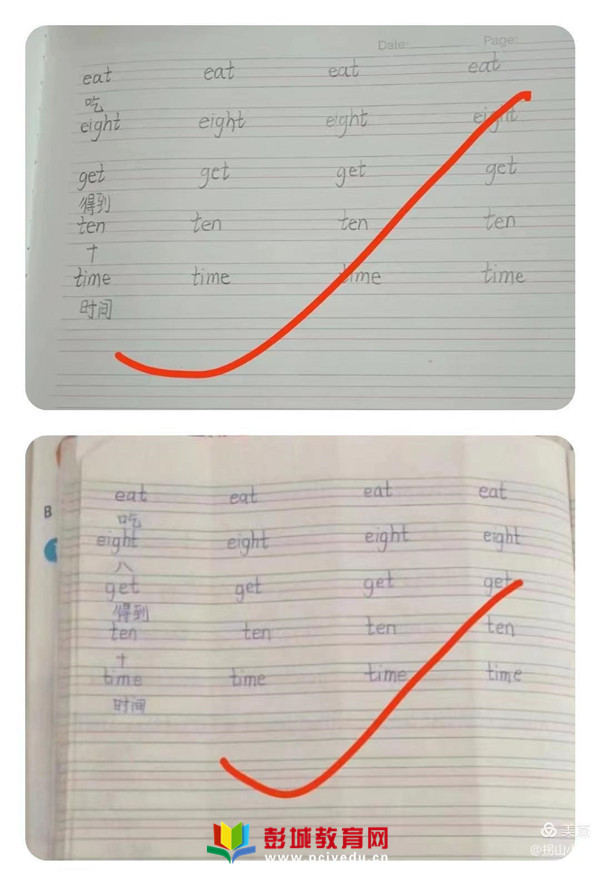 Date: Page:
eat eat eat eat
吃
eight eight eight eight
get get get get
得到
ten ten ten ten
十
time time time time
时间
B
eat eat eat eat
吃
eight eight eight eight
八
get get get get
得到
ten ten ten ten
十
time time time time
时间
彭城教育网
www.pcjyedu.cn
美篇